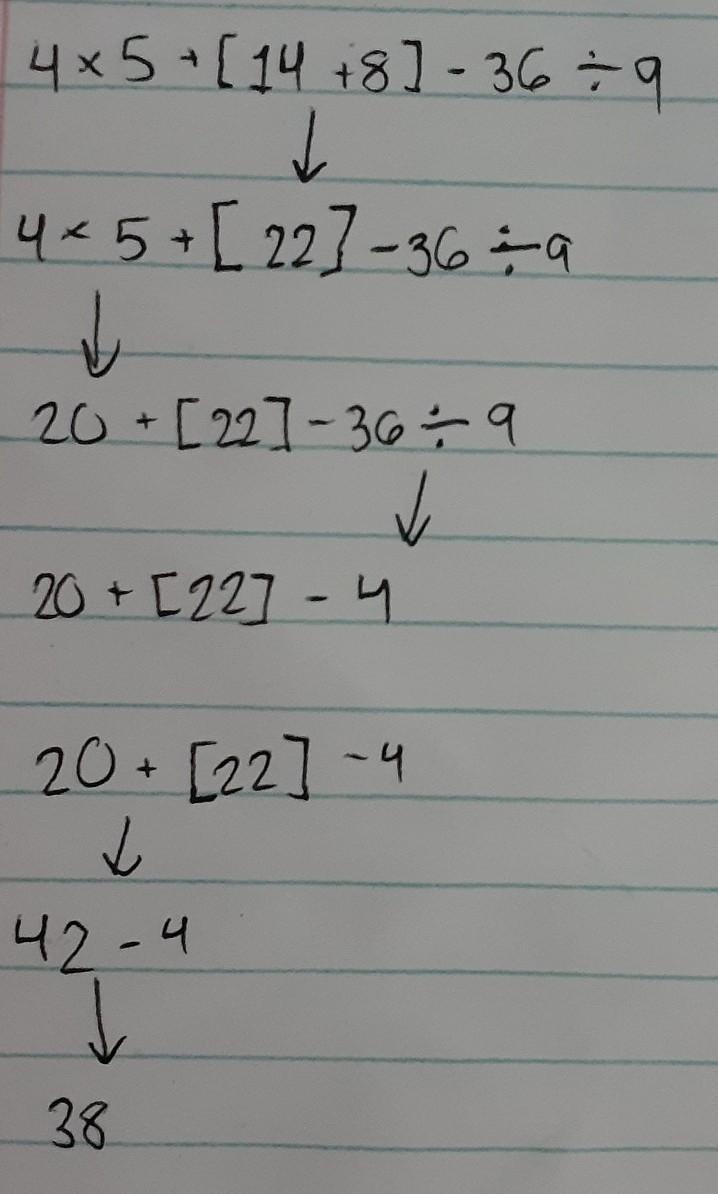 4 × 5 + [14 + 8] - 36 ÷ 9
↓
4 × 5 + [22] - 36 ÷ 9
↓
20 + [22] - 36 ÷ 9
↓
20 + [22] - 4
20 + [22] - 4
↓
42 - 4
↓
38